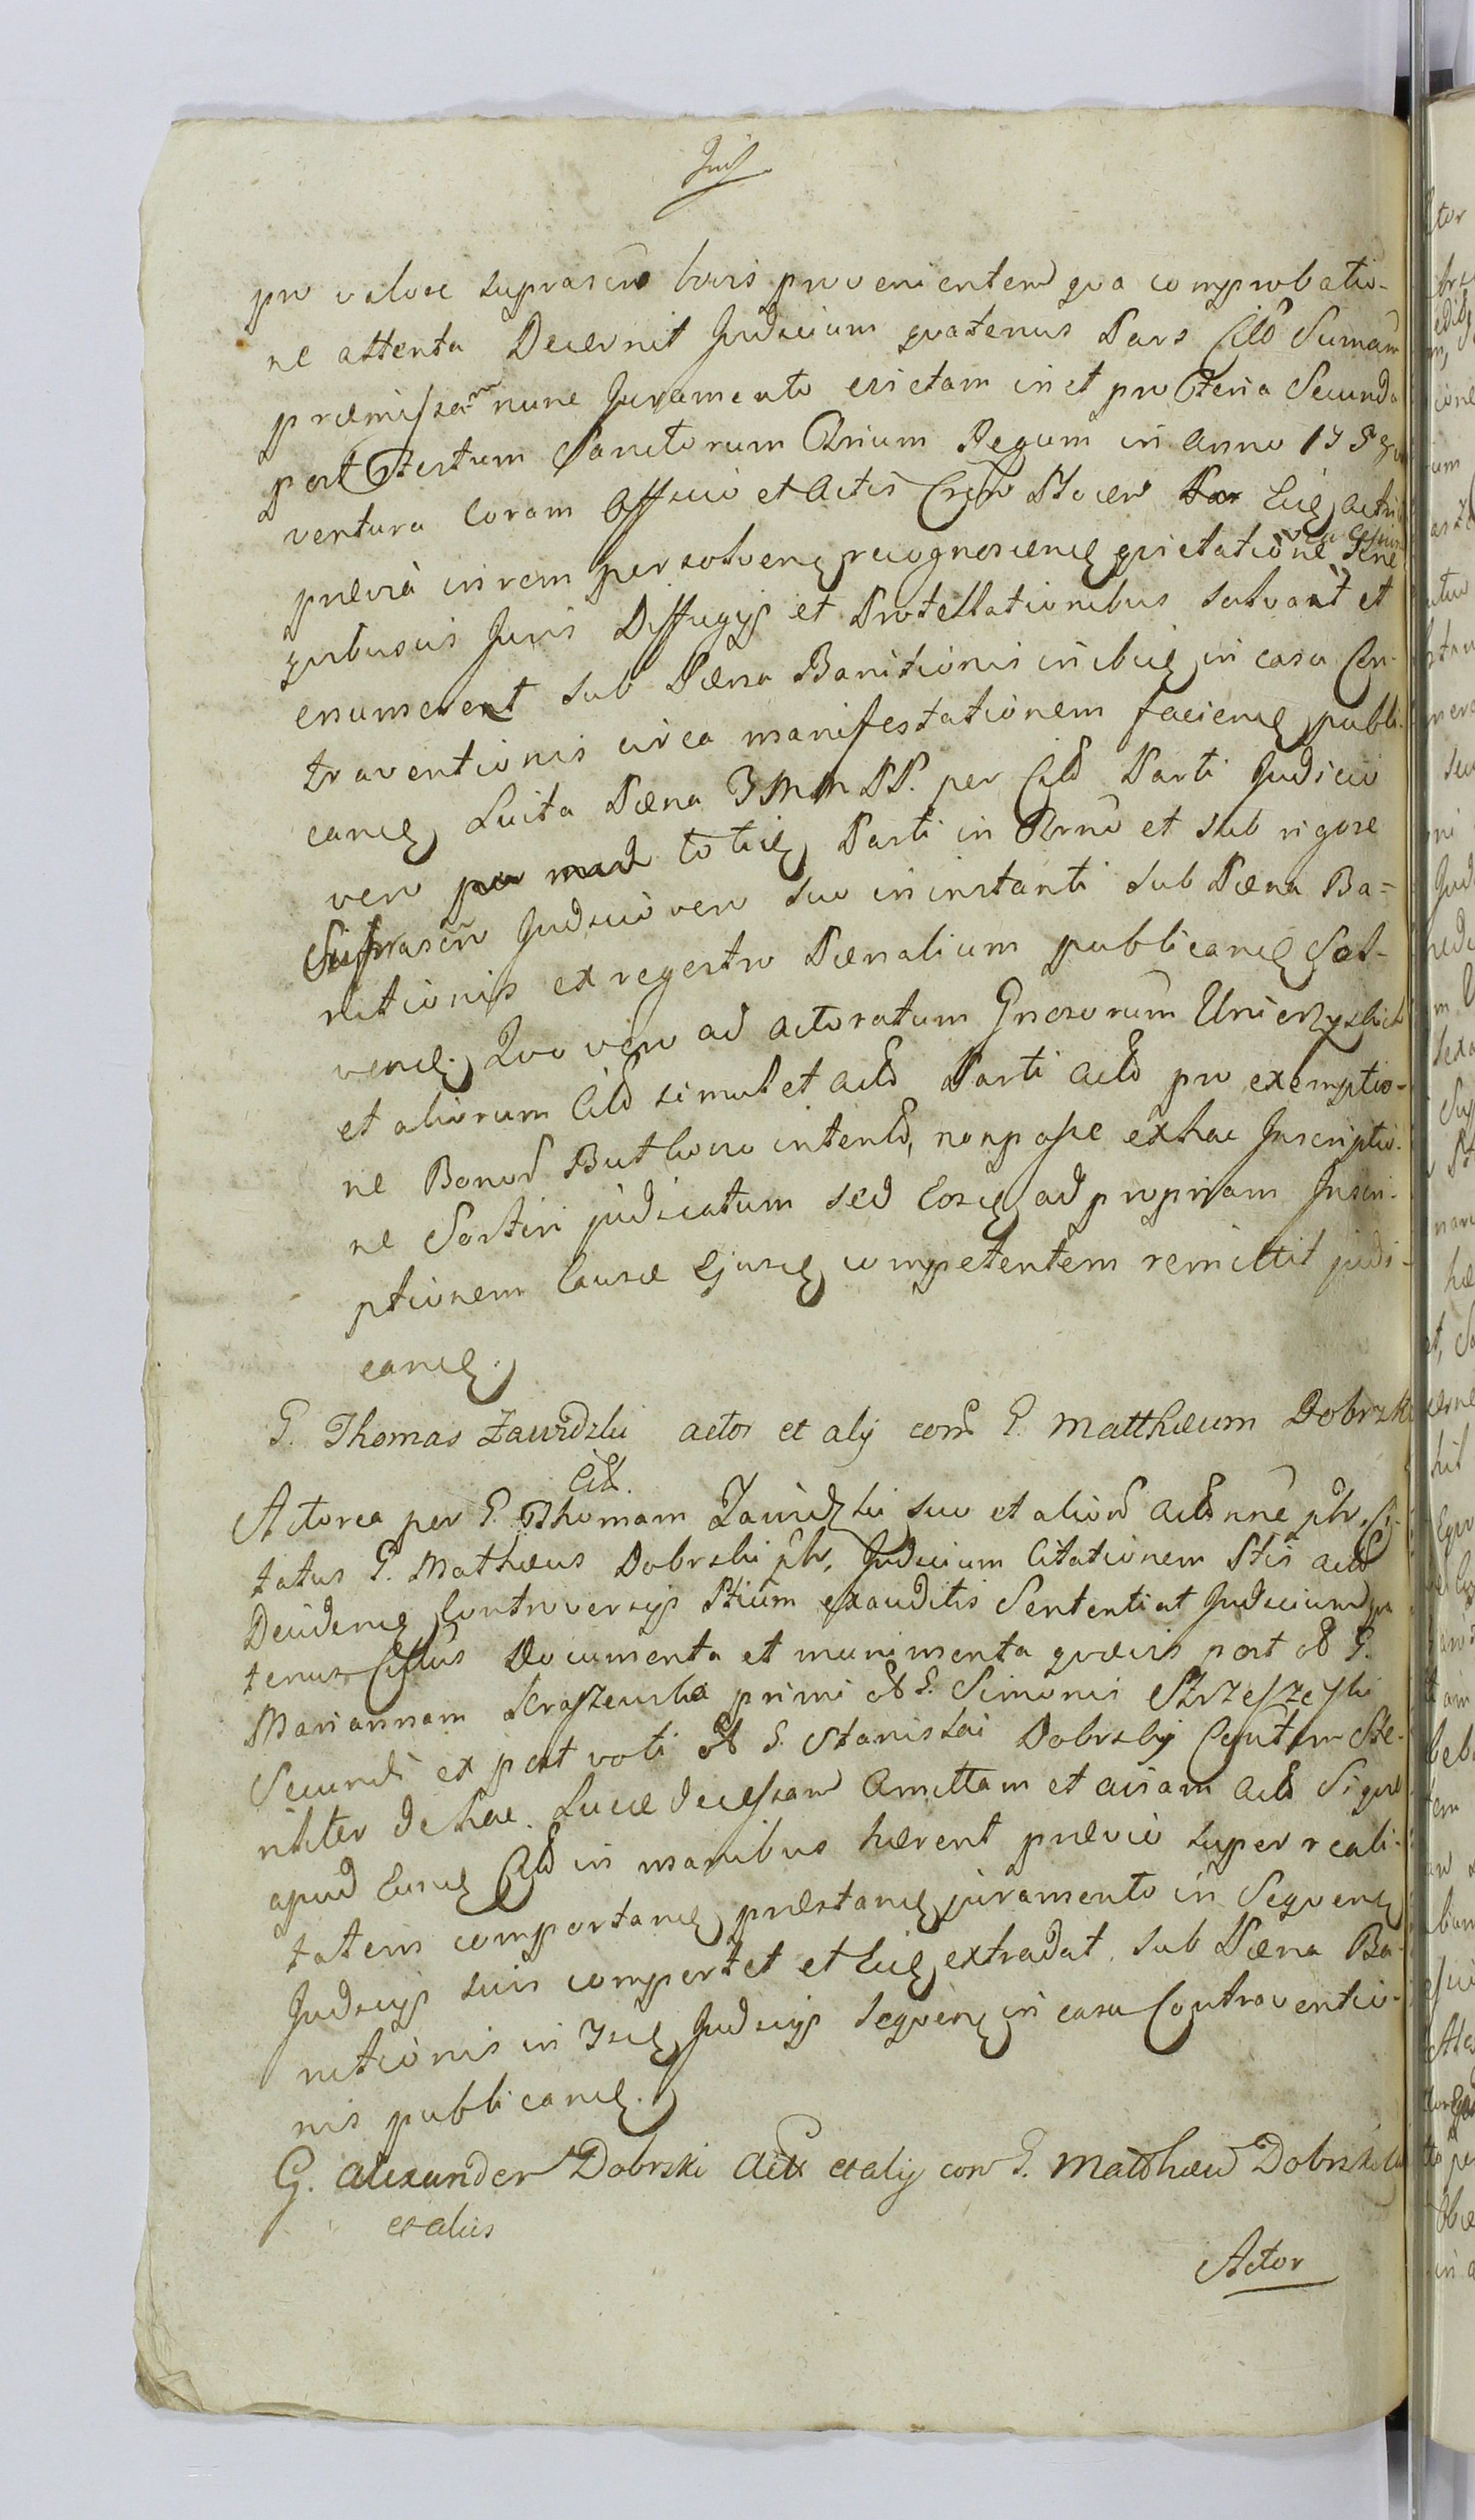 pro valore suprascro bovis provenientem qua comprobatio-
ne attenta Decernit Judicium quatenus Pars Citd Sumam
præmissam nunc Juramento evictam in et pro Feria Secunda
post Festum Sanctorum Trium Regum in Anno
ventura coram Officio et Actis Crav Stoceñ Eidę Actri
prævia in rem persolvenę recognoscenę quietatione Sine
quibuscis Juris Diffugijs et Protellationibus solvant et
enumerent sub Pæna Banitionis inibię in casu Con-
traventionis circa manifestationem facienę publi-
canę Luita Pæna 3 M M PP. per Citd Parti Judicio
vero totię Parti in Trno et sub rigore
Suprascro Judicio vero suo in instanti sub Pæna Ba=
nitionis ex regestro Pænalium publicanę Sol-
venę. Quo vero ad actoratum Gnosorum
et aliorum Citd simul et actd Parti actd pro exemptio-
ne Bonor intentd, non posse ex hac Inscriptio-
ne Sortiri judicatum sed Eosdę ad propriam Inscri-
ptionem Causæ Ejusdę competentem remittit judi-
canę.
G. Thomas Zawidzki actor et alij con G. Matthæum Dobrzki
Citd.
Actorea per G. Thomam Zawidzki suo et alior actd nne phr, Ci-
tatus G. Mathæus Dobrski phr, Judicium Citationem Ptis actd
Decidenę Controversijs Ptium exauditis Sententiat Judicium qua
tenus Citatus Documenta et munimenta quævis post od G.
Mariannam primi od G. Simonis
Secundi ex post voti od G. Stanislai Dobrski Consortem Ste-
riliter de hac Luce decessam Amittam et aviam actd Siquæ
apud Eundę Citd in manibus hærent prævio super reali-
tatem comportanę præstanę juramento in Sequenę
Judicijs suis comportet et Eidę extradat, sub Pæna Ba-
nitionis in Isdę Judicijs Sequenę in casu Contraventio-
nis publicanę.
G. Alexander Dobrski Actor et alij con G. Matthæu Dobrski
et aliis
Actor